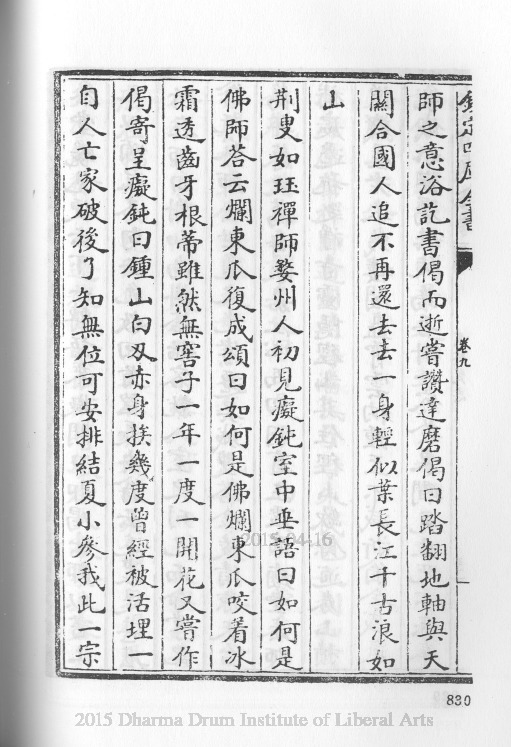 欽定四庫全書
卷九
師之意浴訖書偈而逝嘗讚達磨偈曰踏翻地軸與天
關合國人追不再還去去一身輕似葉長江千古浪如
山
荆叟如珏禪師婺州人初見癡鈍室中垂語曰如何是
佛師荅云爛東瓜復成頌曰如何是佛爛東瓜咬着冰
霜透齒牙根蒂雖然無窖子一年一度一開花又嘗作
偈寄呈癡鈍曰鍾山白刄赤身挨幾度曾經被活埋一
自人亡家破後了知無位可安排結夏小參我此一宗
2015-04-16
830
2015 Dharma Drum Institute of Liberal Arts